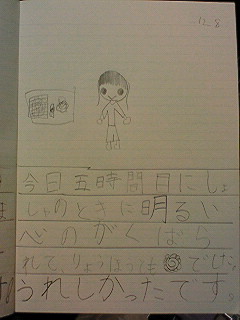 12.8
今日五時間目にしょ
しゃのときに明るい
心のがくばら
れて、りょうほうも
うれしかったです。